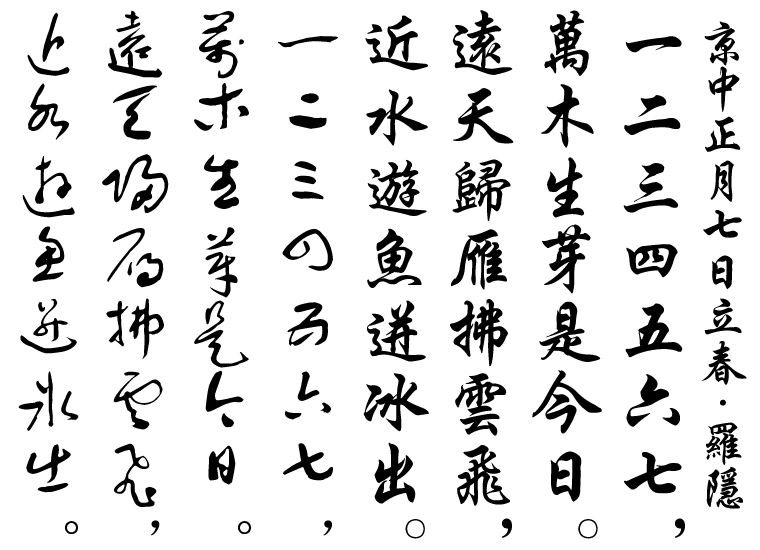 京中正月七日立春·羅隱
一二三四五六七，
萬木生芽是今日。
遠天歸雁拂雲飛，
近水遊魚迸冰出。
一二三四五六七，
萬木生芽是今日。
遠天歸雁拂雲飛，
近水遊魚迸冰出。